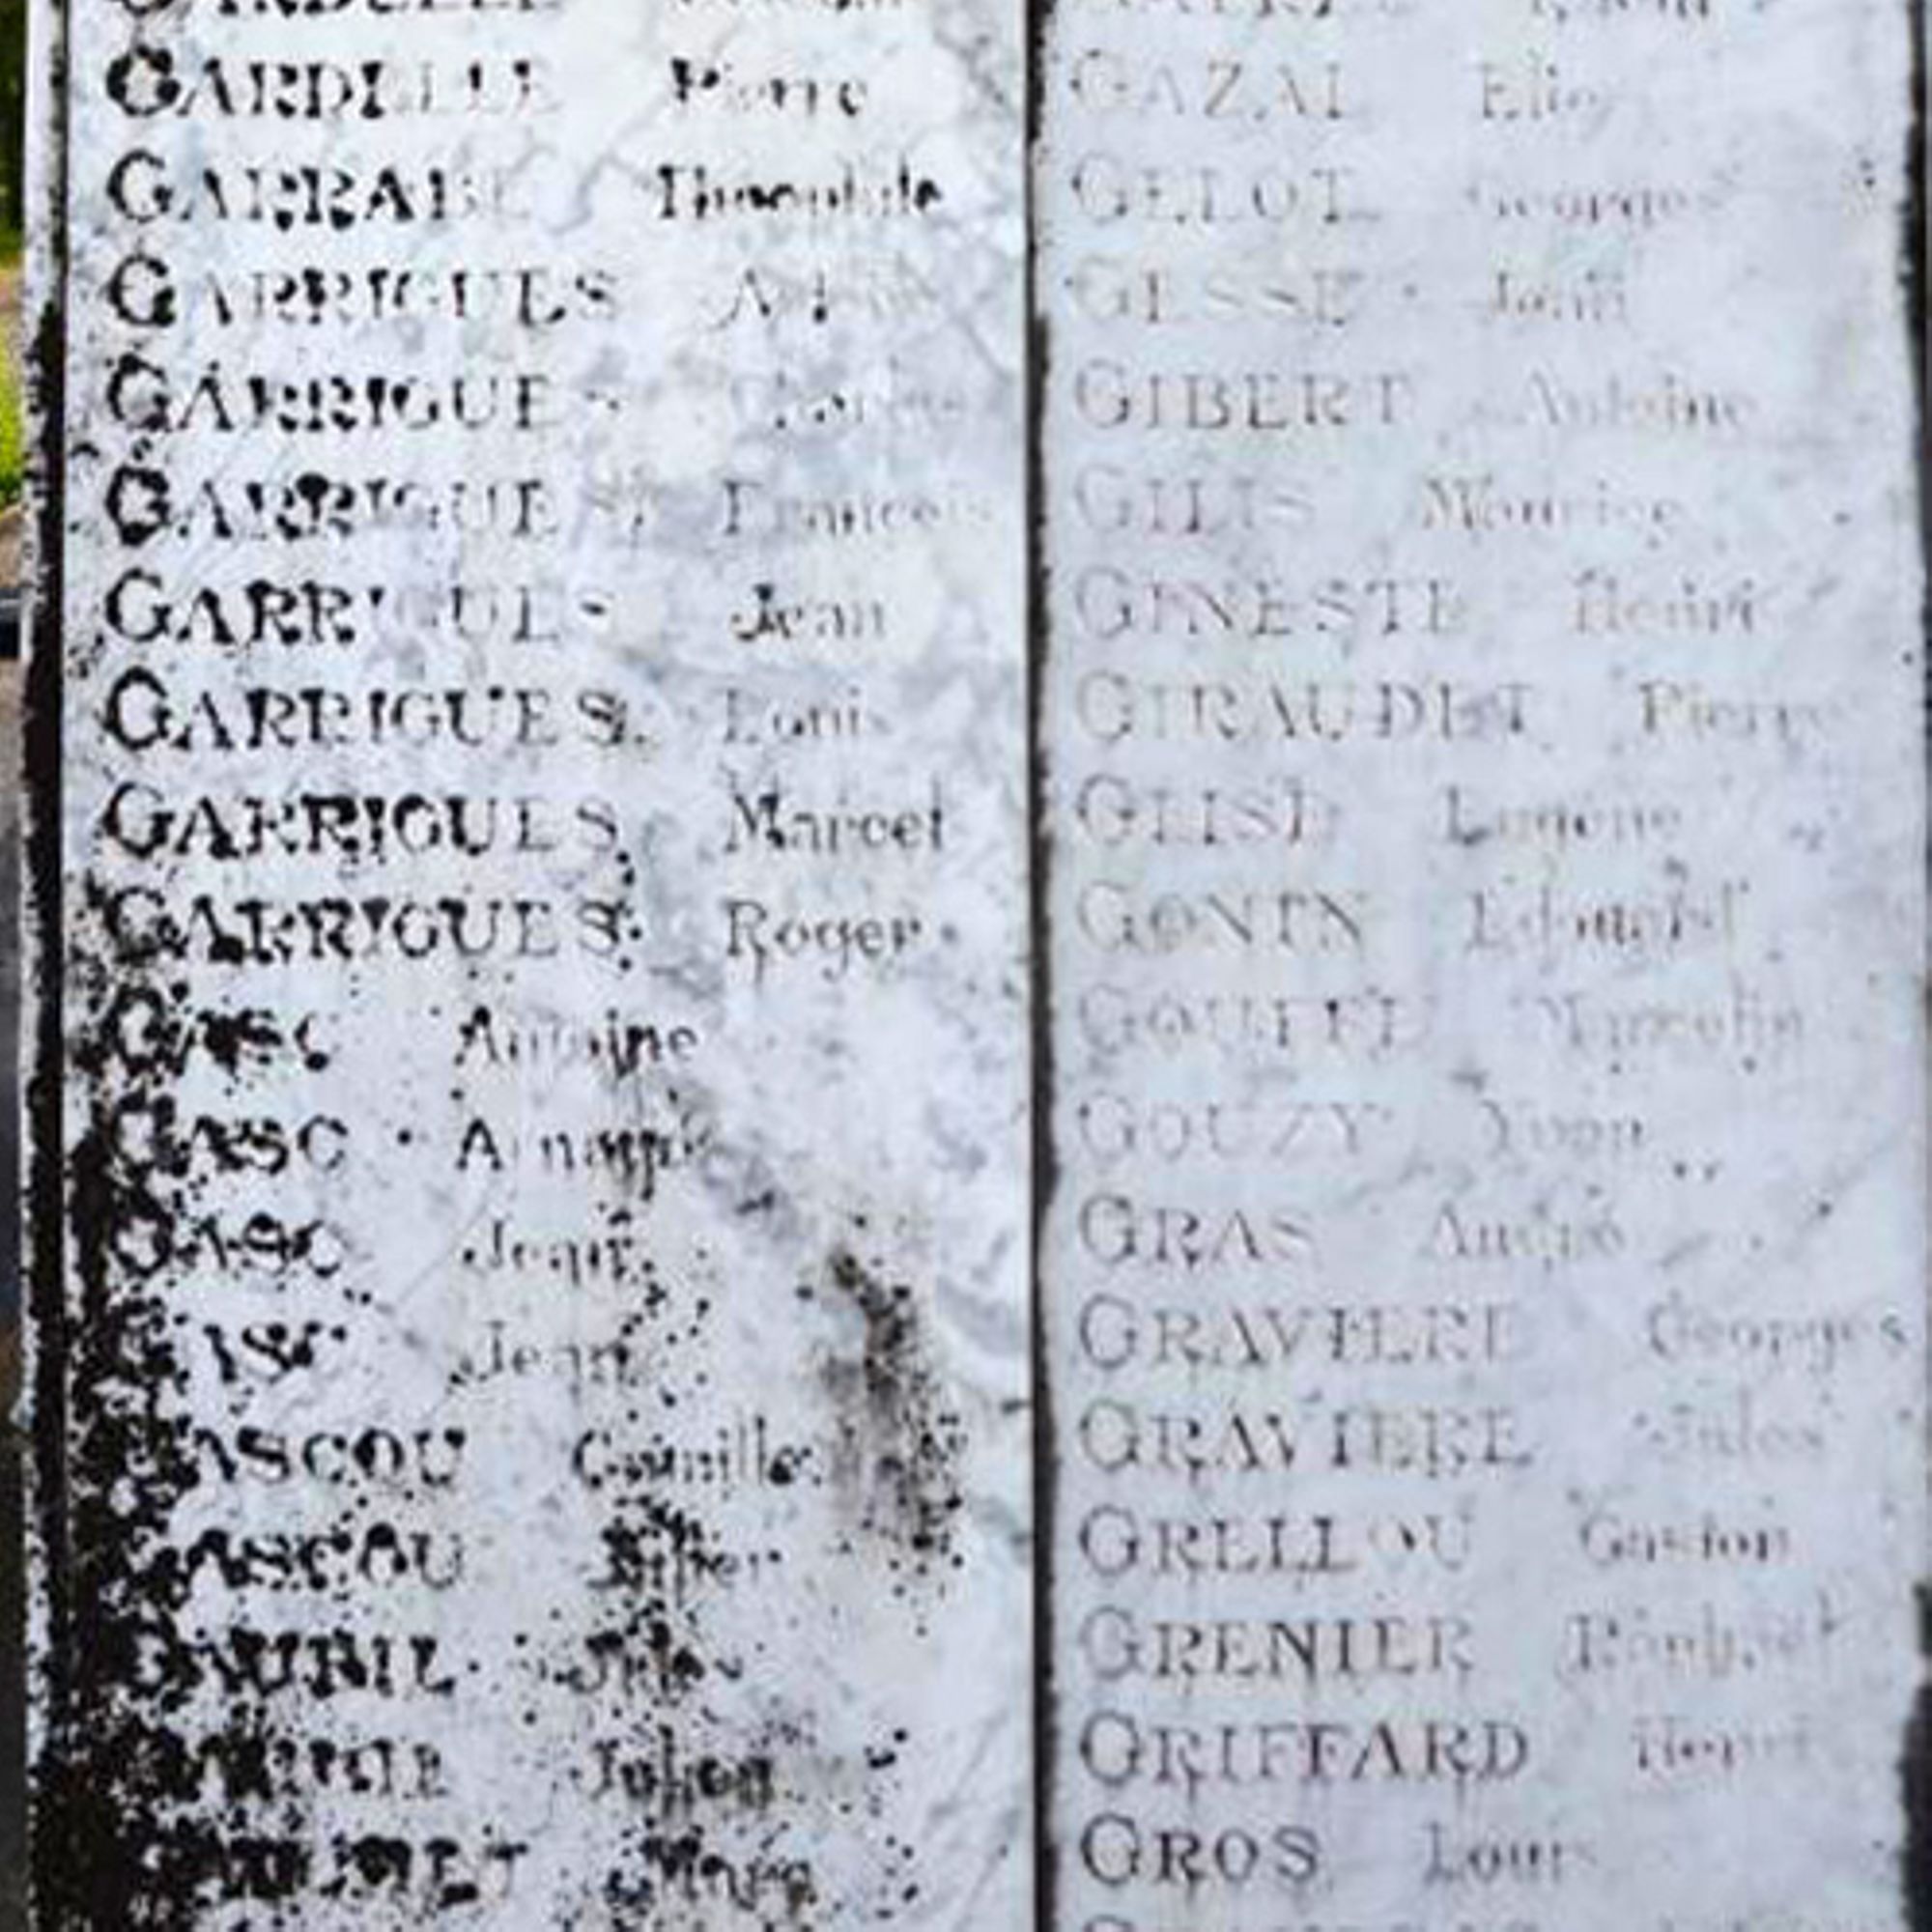 GARDELLE Pierre
GARRABE Théophile
GARRIGUES
GARRIGUES Charles
GARRIGUES François
GARRIGUES Jean
GARRIGUES Louis
GARRIGUES Marcel
GARRIGUES Roger
GASC Antoine
GASC Armand
GASC Jean
GASC Jean
GASCOU Camille
GASCOU
GAUBIL Jules
Julien
GAZAL Elie
GELOT Georges
GESSE Jean
GIBERT Antoine
GILIS Maurice
GINESTE Henri
GIRAUDET Pierre
GLISE Eugène
GONIN Edouard
GOUFFE Marcelin
GOUZY Yvon
GRAS André
GRAVIERE Georges
GRAVIERE Jules
GRELLOU Gaston
GRENIER
GRIFFARD Henri
GROS Louis